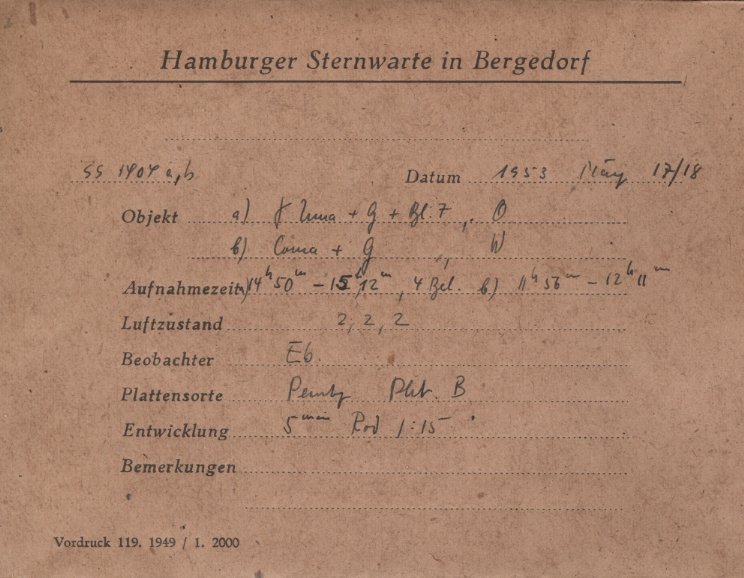 Hamburger Sternwarte in Bergedorf
SS 1404 a,b Datum 1953 März 17/18
Objekt a) + G + Bl. 7, O
b) Coma + G ,, W
Aufnahmezeit a) 14h 50m – 15h 12m, 4 Bel. b) 11h 56m – 12h 11m
Luftzustand 2, 2, 2
Beobachter Eb.
Plattensorte B
Entwicklung 5 min Rod 1:15
Bemerkungen
Vordruck 119. 1949 / 1. 2000